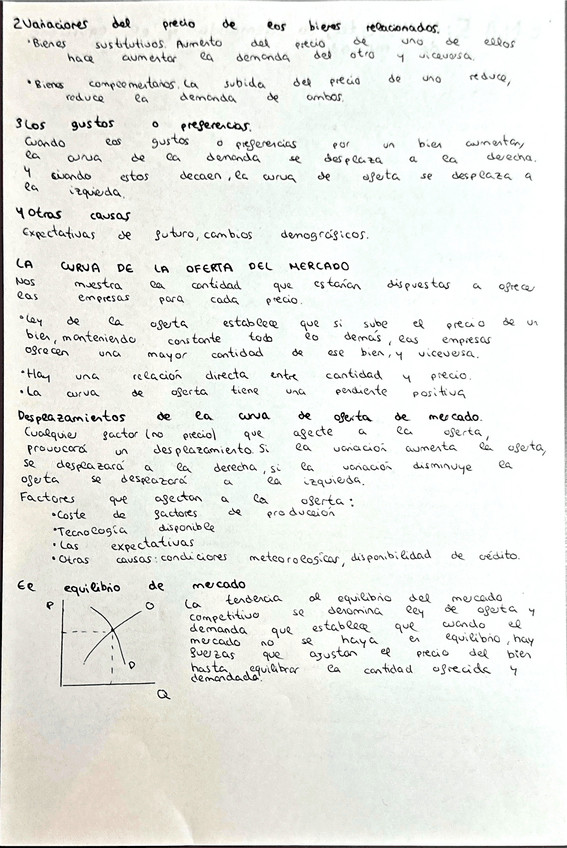 2 Variaciones del precio de los bienes relacionados.
• Bienes sustitutivos. Aumento del precio de uno de ellos
hace aumentar la demanda del otro y viceversa.
• Bienes complementarios. La subida del precio de uno reduce,
reduce la demanda de ambos.
3 Los gustos o preferencias.
Cuando los gustos o preferencias por un bien aumentan,
la curva de la demanda se desplaza a la derecha.
Y cuando estos decaen, la curva de oferta se desplaza a
la izquierda.
4 Otras causas
Expectativas de futuro, cambios demográficos.
LA CURVA DE LA OFERTA DEL MERCADO
Nos muestra la cantidad que estarían dispuestas a ofrece
las empresas para cada precio.
• Ley de la oferta establece que si sube el precio de un
bien, manteniendo constante todo lo demás, las empresas
ofrecen una mayor cantidad de ese bien, y viceversa.
• Hay una relación directa entre cantidad y precio.
• La curva de oferta tiene una pendiente positiva
Desplazamientos de la curva de oferta de mercado.
Cualquier factor (no precio) que afecte a la oferta,
provocará un desplazamiento. Si la variación aumenta la oferta,
se desplazará a la derecha, si la variación disminuye la
oferta se desplazará a la izquierda.
Factores que afectan a la oferta:
• Coste de factores de producción
• Tecnología disponible
• Las expectativas
• Otras causas: condiciones meteorologicas, disponibilidad de crédito.
El equilibrio de mercado
P
O
D
Q
La tendencia al equilibrio del mercado
competitivo se denomina ley de oferta y
demanda que establece que cuando el
mercado no se haya en equilibrio, hay
fuerzas que ajustan el precio del bien
hasta equilibrar la cantidad ofrecida y
demandada.